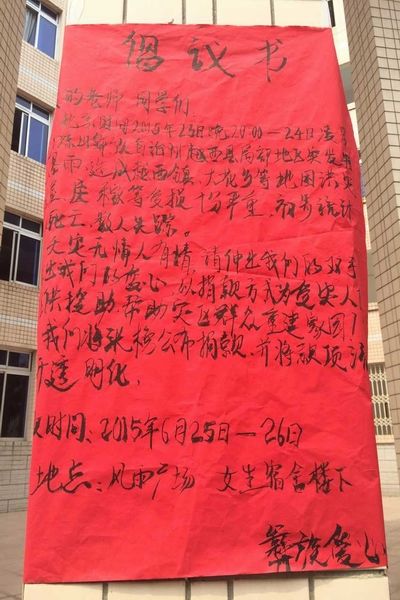 倡议书
的老师 同学们:
北京时间2015年 23日晚20:00—24日凌
四川凉山自治州越西县局部地区突发
暴雨,造成越西镇、大花乡等地因洪灾
庄稼等受损十分严重,初步统计
死亡,数人失踪。
天灾无情人有情,请伸出我们的双手
出我们的爱心,以捐款方式为受灾人
供援助,帮助灾区群众重建家园!
我们将张榜公布捐款,并将款项
透明化。
时间:2015年6月25日—26日
地点:风雨广场 女生宿舍楼下
彝族